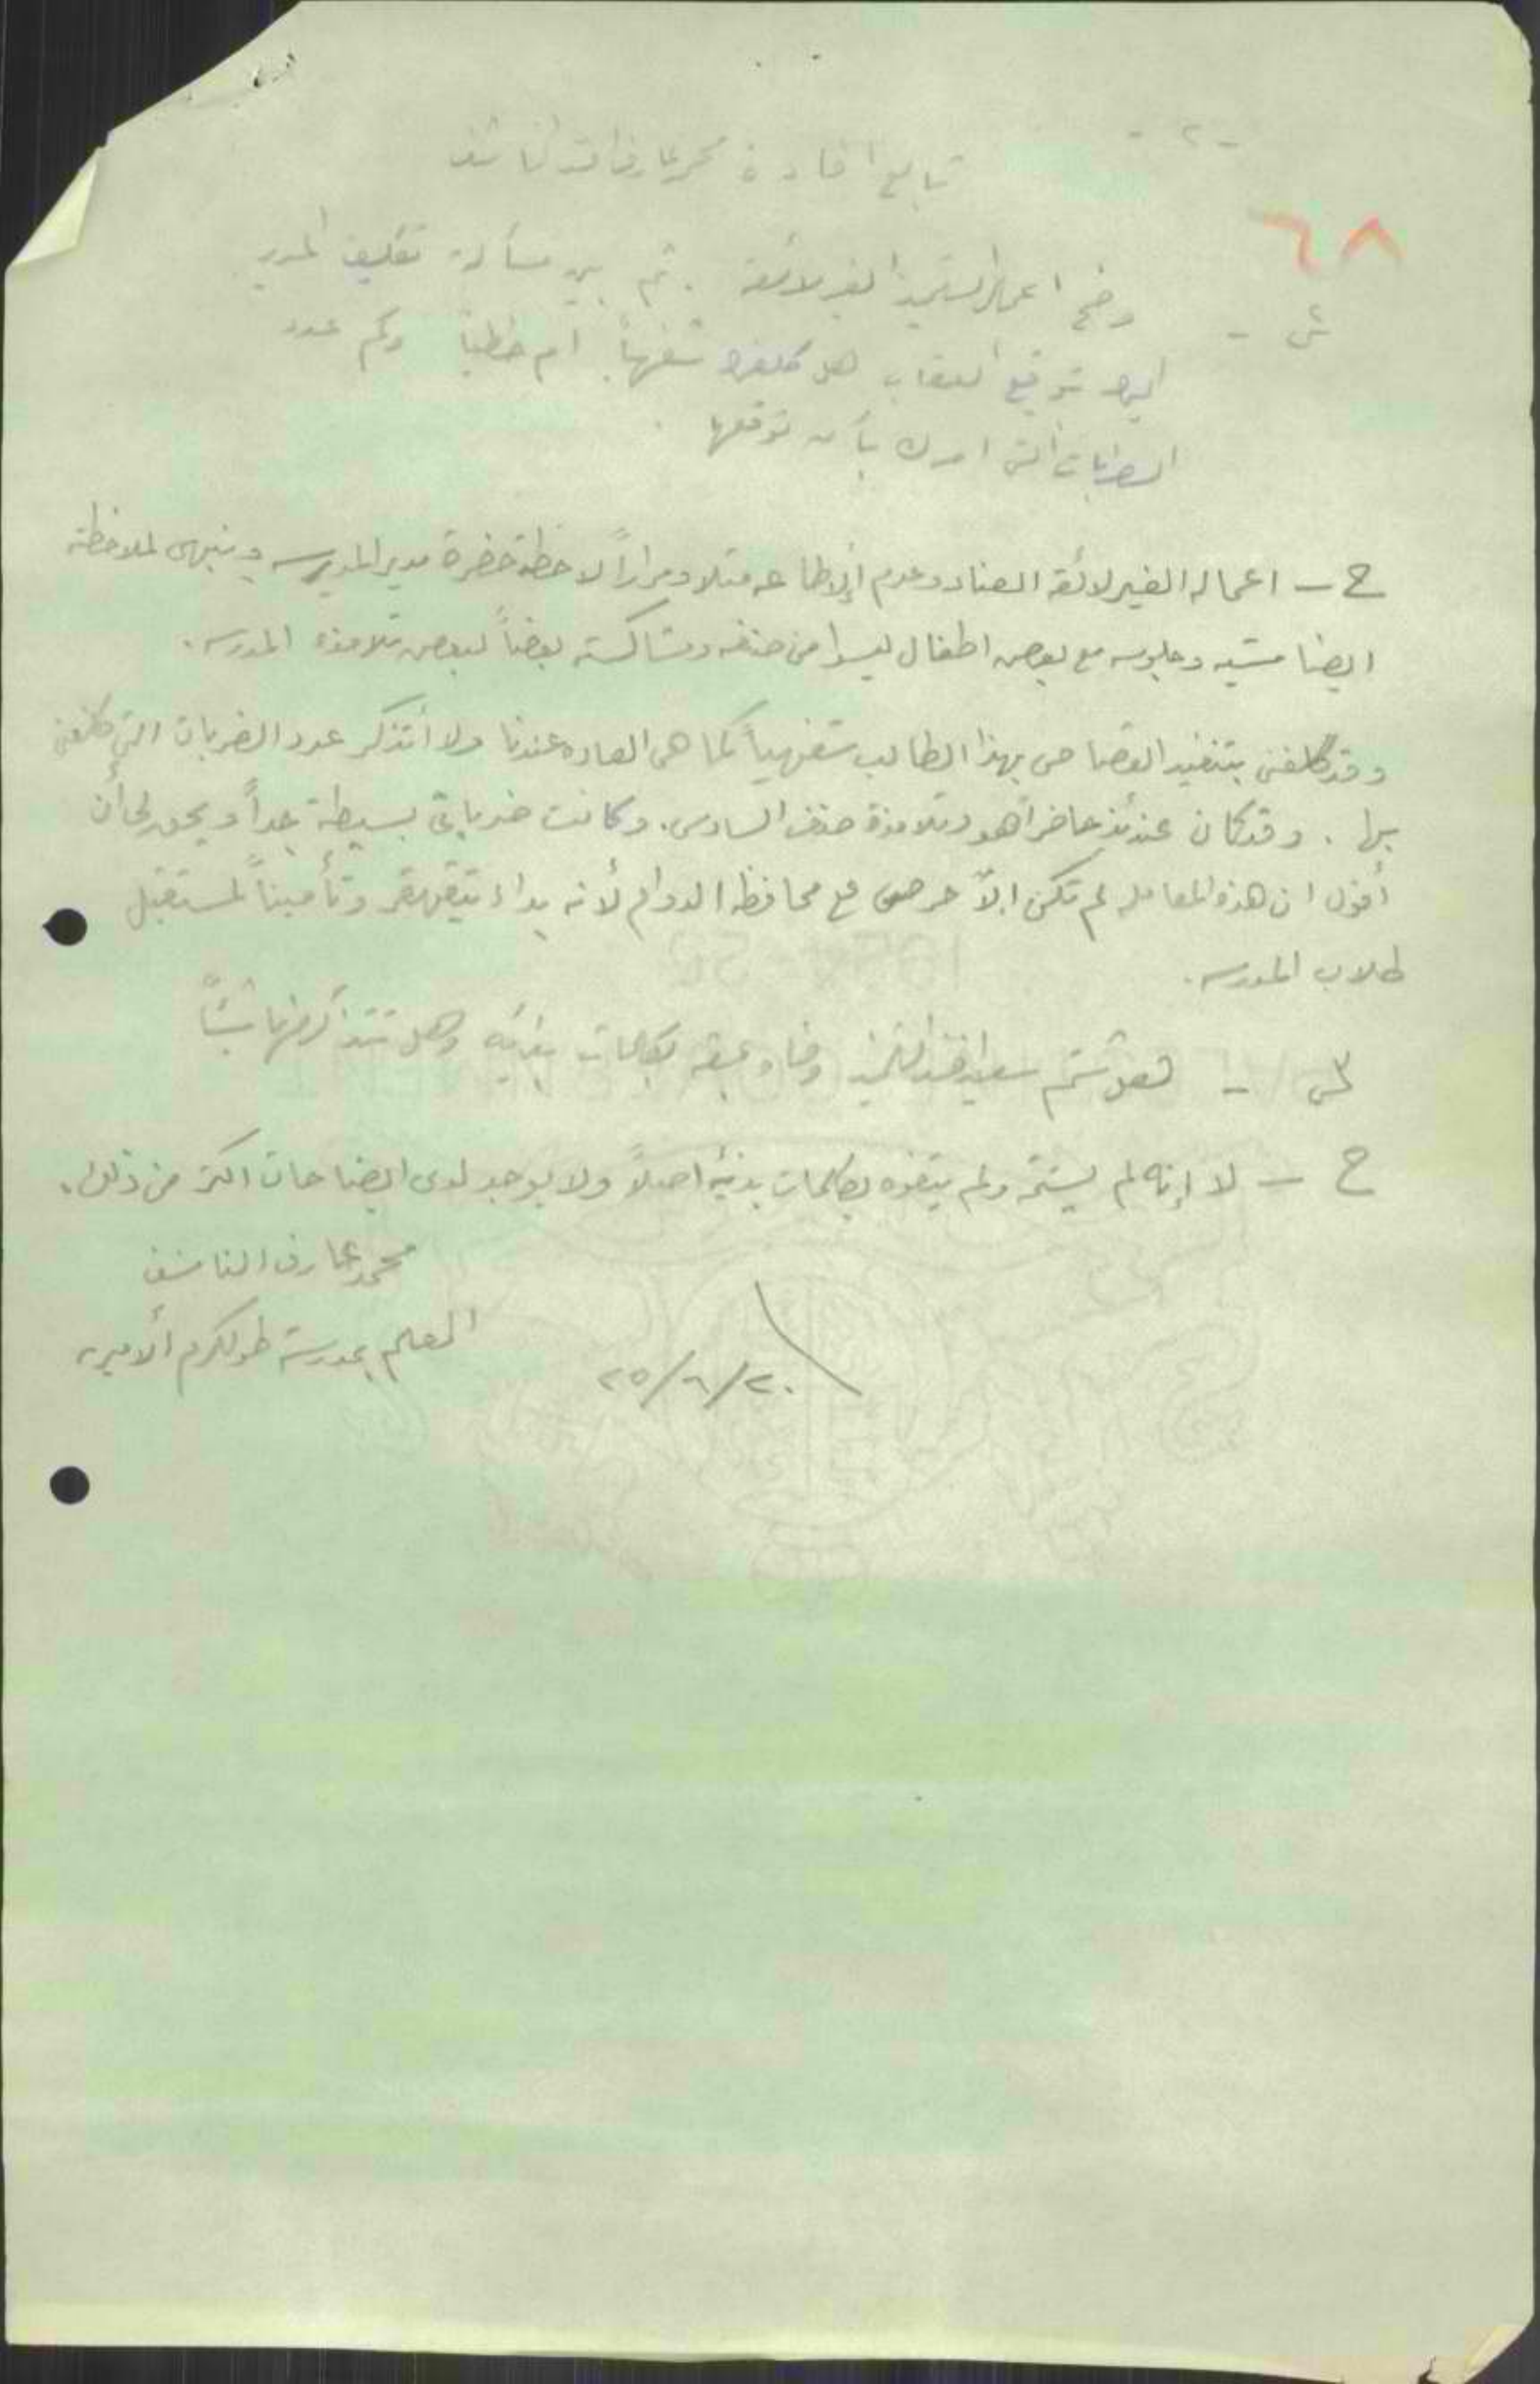 - ٢ -
تابع افادة محمد عارف افندي الناشف
٦٨
س - وضح اعمال التلميذ الغير لائقة . ثم بين مسألة تكليف المدير
اليك توقيع العقاب هل كلفك شفهياً ام خطياً وكم عدد
الضربات التي امرك بأن توقعها .
ج - اعماله الغير لائقه العناد وعدم الإطاعه مثلا ومراراً لاحظه حضرة مدير المدرسه وينبهني لملاحظة
ايضا مشيه وجلوسه مع بعض اطفال ليسوا من صنفه ومشاكسته بعضاً لبعض تلامذه المدرسه .
وقد كلفني بتنفيذ القصاص بهذا الطالب شفهياً كما هي العاده عندنا ولا أتذكر عدد الضربات التي كلفني
بها . وقد كان عندئذ حاضراً هو وتلامذة صنف السادس . وكانت ضرباتي بسيطة جداً ويحق لي أن
أقول ان هذه المعامله لم تكن الاّ حرص مع محافظة الدوام لأنه بداء يتقهقر وتأميناً لمستقبل
طلاب المدرسه .
س - هل شتم سعيد افندي التلميذ وفاه بحقه بكلمات بذيئه وهل تتذكر منها شيئاً
ج - لا إنه لم يشتمه ولم يتفوه بكلمات بذيئه اصلاً ولا يوجد لدي ايضاحات اكثر من ذلك .
محمد عارف الناشف
المعلم بمدرسة طولكرم الأميريه
٢٥/٦/٢٠